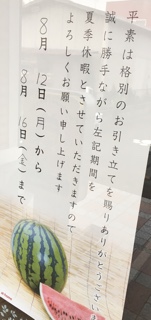 平素は格別のお引き立てを賜りありがとうございま
誠に勝手ながら左記期間を
夏季休暇とさせていただきますので
よろしくお願い申し上げます
8月12日(月)から
8月16日(金)まで